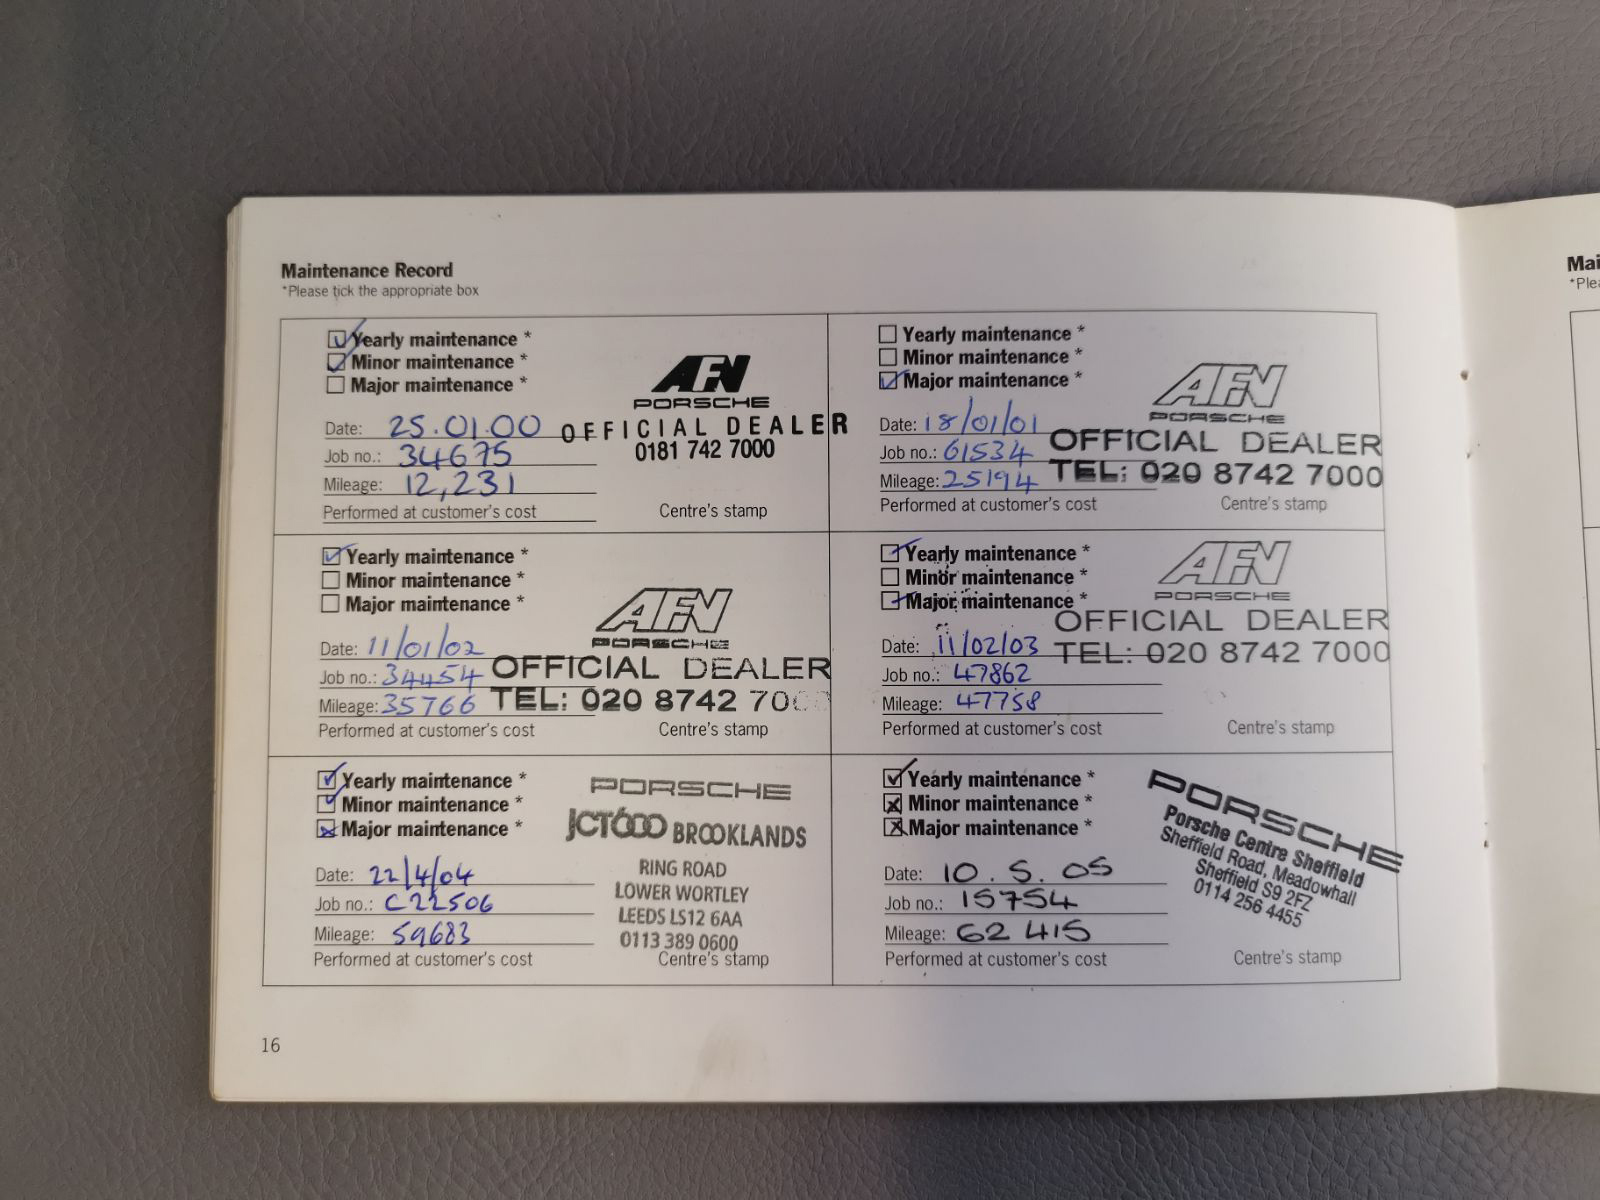 Maintenance Record
*Please tick the appropriate box
Yearly maintenance *
Minor maintenance *
Major maintenance *
Date: 25.01.00
Job no.: 34675
Mileage: 12,231
Performed at customer's cost
AFN
PORSCHE
OFFICIAL DEALER
0181 742 7000
Centre's stamp
Yearly maintenance *
Minor maintenance *
Major maintenance *
Date: 18/01/01
Job no.: 61534
Mileage: 25194
Performed at customer's cost
AFN
PORSCHE
OFFICIAL DEALER
TEL: 020 8742 7000
Centre's stamp
Yearly maintenance *
Minor maintenance *
Major maintenance *
Date: 11/01/02
Job no.: 34454
Mileage: 35766
Performed at customer's cost
AFN
PORSCHE
OFFICIAL DEALER
TEL: 020 8742 7000
Centre's stamp
Yearly maintenance *
Minor maintenance *
Major maintenance *
Date: 11/02/03
Job no.: 47862
Mileage: 47758
Performed at customer's cost
AFN
PORSCHE
OFFICIAL DEALER
TEL: 020 8742 7000
Centre's stamp
Yearly maintenance *
Minor maintenance *
Major maintenance *
Date: 22/4/04
Job no.: C22506
Mileage: 59683
Performed at customer's cost
PORSCHE
JCT600 BROOKLANDS
RING ROAD
LOWER WORTLEY
LEEDS LS12 6AA
0113 389 0600
Centre's stamp
Yearly maintenance *
Minor maintenance *
Major maintenance *
Date: 10.5.05
Job no.: 15754
Mileage: 62415
Performed at customer's cost
PORSCHE
Porsche Centre Sheffield
Sheffield Road, Meadowhall
Sheffield S9 2FZ
0114 256 4455
Centre's stamp
16